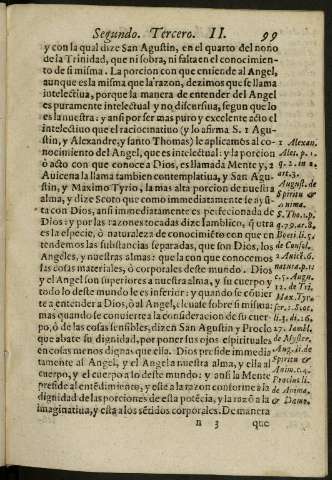 Segundo. Tercero. II. 99
y con la qual dize San Agustin, en el quarto del nono
de la Trinidad, que ni sobra, ni falta en el conocimien-
to de si misma. La porcion con que entiende al Angel,
aunque es la misma que la razon, dezimos que se llama
intelectiua, porque la manera de entender del Angel
es puramente intelectual y no discursiua, segun que lo
es la nuestra: y ansi por ser mas puro y excelente acto el
intelectiuo que el raciocinatiuo (y lo afirma S. 1 Agu-
stin, y Alexandre, y santo Thomas) le aplicamos al co-
nocimiento del Angel, que es intelectual: y la porcion
ò acto con que conoce a Dios, es llamada Mente y, 2
Auicena la llama tambien contemplatiua, y San Agu-
stin, y Maximo Tyrio, la mas alta porcion de nuestra
alma, y dize Scoto que como immediatamente se ayun-
ta con Dios, ansi immediatamente es perfecionada de
Dios: y por las razones tocadas dize Iamblico, q̃ otra
es la especie, ò naturaleza de conocimiẽto con que en-
tendemos las substancias separadas, que son Dios, los
Angeles, y nuestras almas: que la con que conocemos
las cosas materiales, ò corporales deste mundo. Dios
y el Angel son superiores a nuestra alma, y su cuerpo y
todo lo deste mundo le es inferior: y quando se cõuier
te a entender a Dios, ò al Angel, se sube sobre si misma:
mas quando se conuierte a la consideracion de su cuer-
po, ò de las cosas sensibles, dizen San Agustin y Proclo
que abate su dignidad, por poner sus ojos espirituales
en cosas menos dignas que ella. Dios preside immedia
tamente al Angel, y el Angel a nuestra alma, y ella al
cuerpo, y el cuerpo a lo deste mundo: y ansi la Mente
preside al entẽdimiento, y este a la razon conforme a la
dignidad de las porciones de esta potẽcia, y la razõ a la
imaginatiua, y esta a los sẽtidos corporales. De manera
n 3 que
1 Alexan.
Ales. p. 1.
q. 2. in 2.
art. 3.
August. de
Spiritu &
Anima.
S. Tho. 1. p.
q. 79. ar. 8.
Boeti. li. 5.
de Consol.
2 Auic. 6.
natura. p. 1
c. 5. Augu.
12. de Tri.
Max. Tyr.
ser. 1. Scot.
li. 4. di. 16.
27. Iambl.
de Myster.
Aug. li. de
Spiritu &
Anim. c. 4.
Proclus li.
de Anima.
& Dæmo.